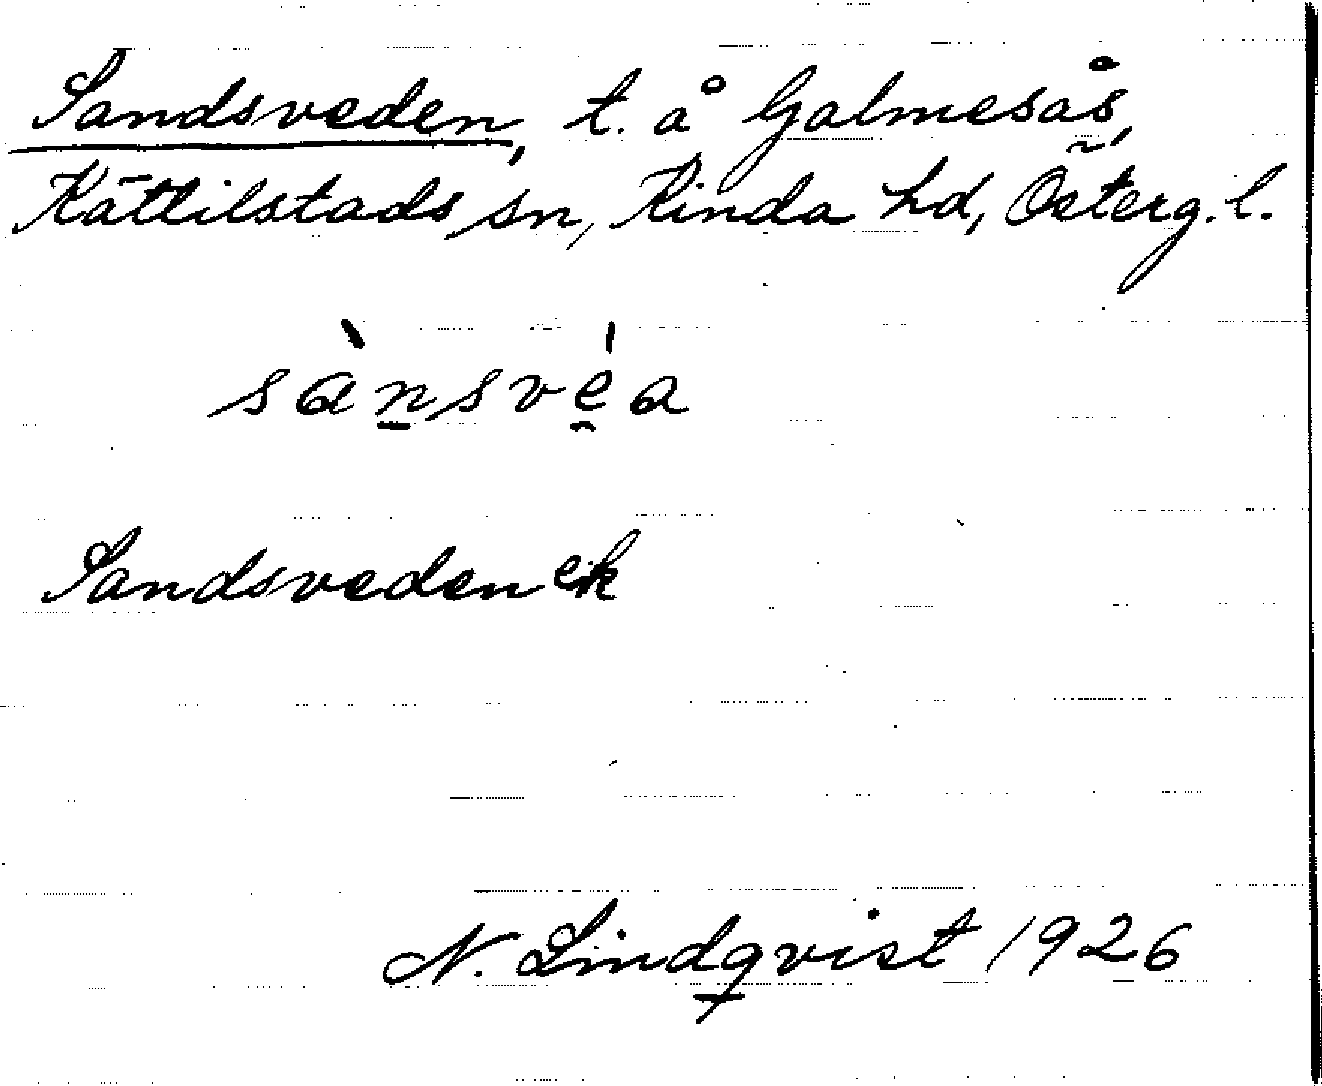 Sandsveden, t. å Galmesås,
Kättilstads sn, Kinda hd, Österg. l.
sànsvéa
Sandsveden ek
N. Lindqvist 1926